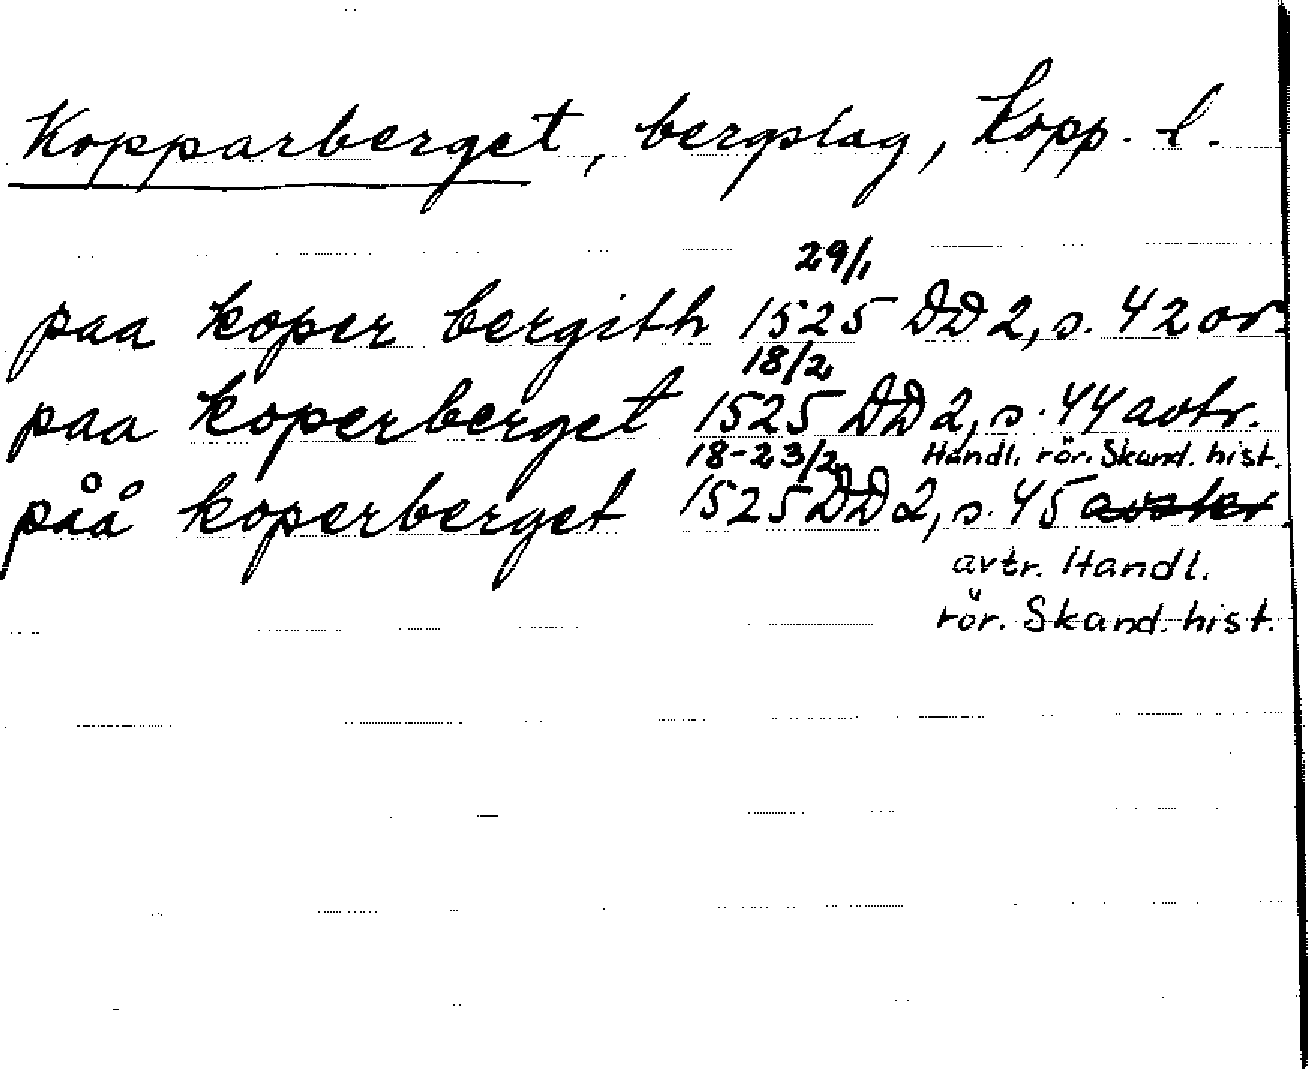 Kopparberget, bergslag, Kopp. l.
29/1
paa koper bergith 1525 DD 2, s. 42 or.
18/2
paa koperberget 1525 DD 2, s. 44 avtr.
18-23/2 Handl. rör. Skand. hist.
påå koperberget 1525 DD 2, s. 45
avtr. Handl.
rör. Skand. hist.